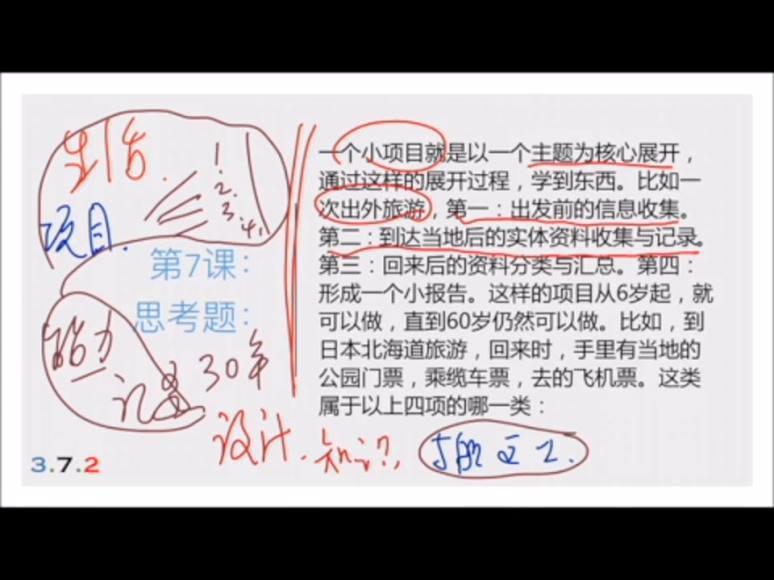 生活.
1.
2.
3.
4.
项目.
第7课：
思考题：
能力
记录
30年
设计.
知识,
3.7.2
一个小项目就是以一个主题为核心展开，
通过这样的展开过程，学到东西。比如一
次出外旅游，第一：出发前的信息收集。
第二：到达当地后的实体资料收集与记录。
第三：回来后的资料分类与汇总。第四：
形成一个小报告。这样的项目从6岁起，就
可以做，直到60岁仍然可以做。比如，到
日本北海道旅游，回来时，手里有当地的
公园门票，乘缆车票，去的飞机票。这类
属于以上四项的哪一类：